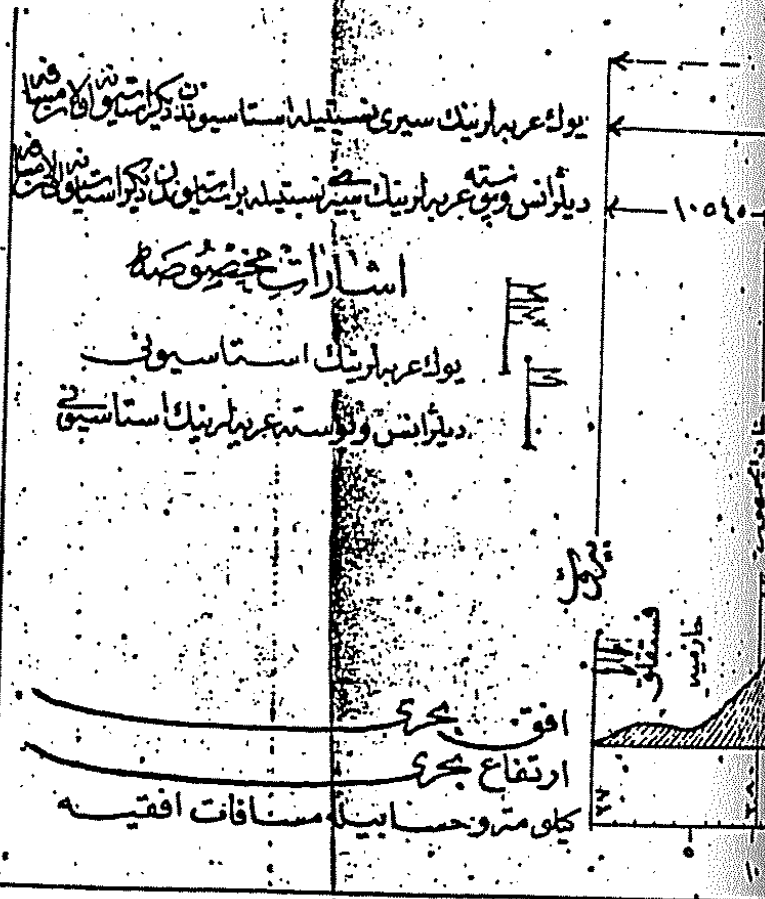 يوك عربه لرينك سيرى نسبتيله استاسيوندن ديكر استاسيونه اولان مسافه
ديلژانس وپوسته عربه لرينك سيرى نسبتيله بر استاسيوندن ديكر استاسيونه اولان مسافه
١٠٥٤٥
اشارات مخصوصه
يوك عربه لرينك استاسيونى
ديلژانس وپوسته عربه لرينك استاسيونى
بيروت
فستقلق
حازميه
افق بحرى
ارتفاع بحرى
٢٧
كيلومترو حسابيله مسافات افقيه
٥
١٠